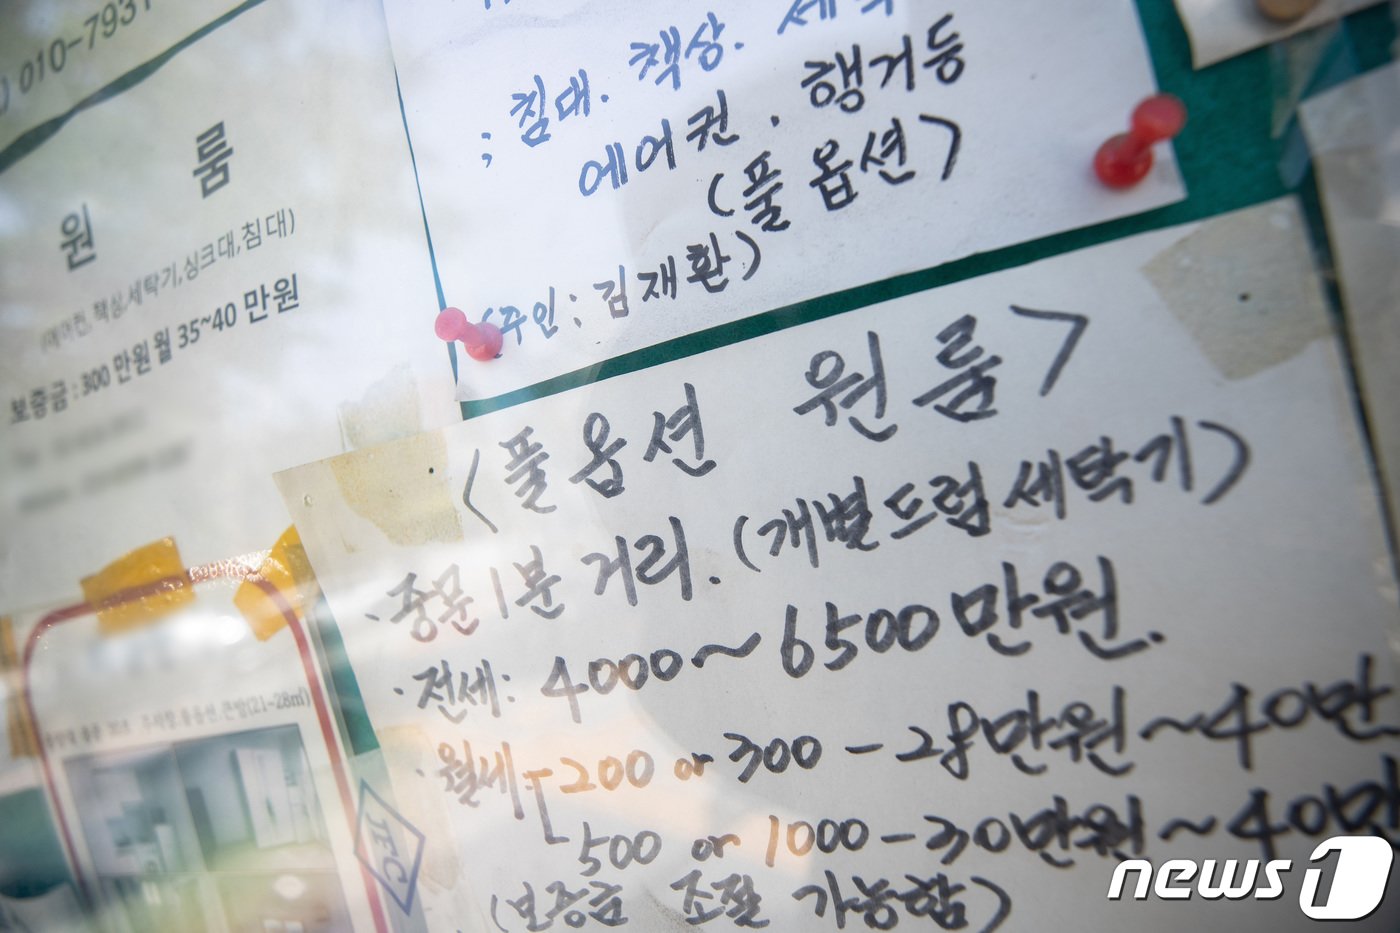 010-7931
원 룸
(에어컨, 책상,세탁기,싱크대,침대)
보증금 : 300 만원 월 35~40 만원
; 침대. 책상.
에어컨 . 행거등
(풀 옵션)
(주인 : 김재환)
<풀옵션 원룸>
· 중문 1분 거리. (개별드럼세탁기)
· 전세: 4000~6500만원.
· 월세 200 or 300 - 28만원~40만
500 or 1000 - 30만원~40만
(보증금 조절 가능함)
풀옵션,큰방(21~28㎡)
JFC
news1